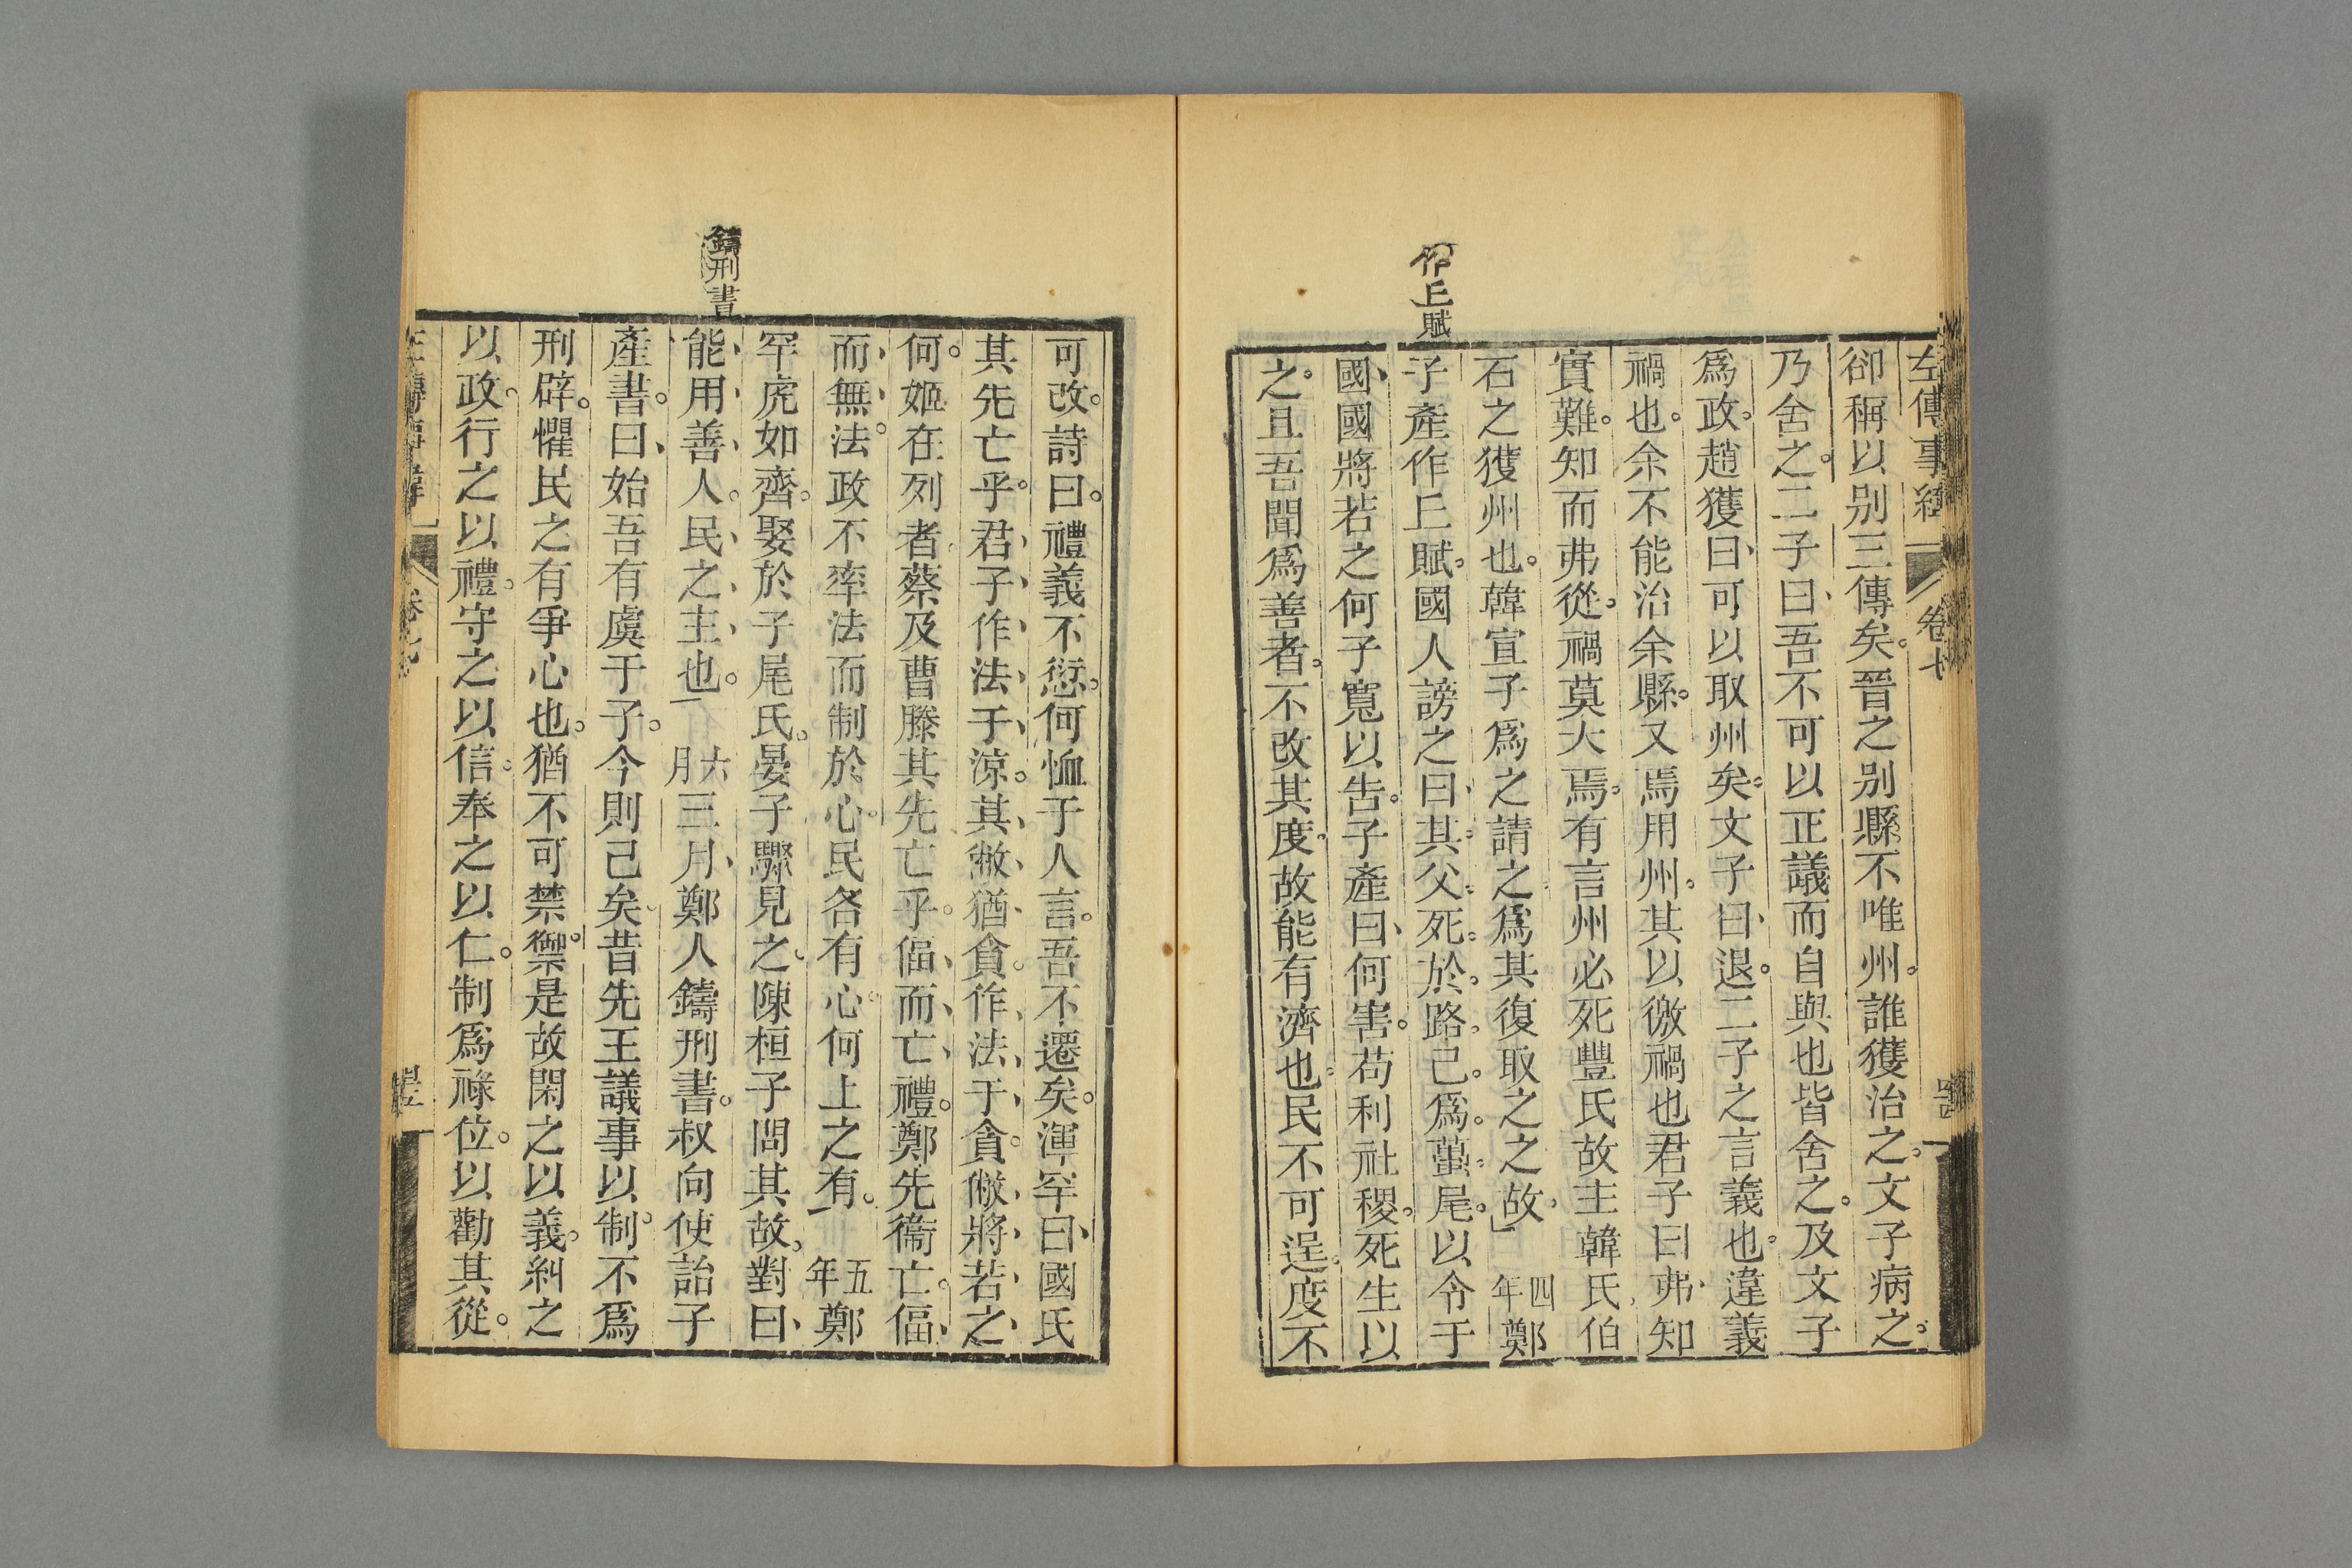 左傳事緯
卷七
郤稱以别三傳矣。晉之别縣不唯州。誰獲治之。文子病之。
乃舍之。二子曰、吾不可以正議而自與也皆舍之。及文子
爲政。趙獲曰、可以取州矣。文子曰、退。二子之言義也。違義
禍也。余不能治余縣。又焉用州。其以徼禍也君子曰弗知
實難。知而弗從。禍莫大焉。有言州必死豐氏故主韓氏、伯
石之獲州也。韓宣子爲之請之。爲其復取之之故。」四年鄭
作丘賦
子產作丘賦。國人謗之曰、其父死於路。己爲蠆尾。以令于
國、國將若之何子寬以告。子產曰、何害。苟利社稷。死生以
之。且吾聞爲善者。不改其度。故能有濟也。民不可逞。度不
可改。詩曰。禮義不愆。何恤于人言。吾不遷矣。渾罕曰、國氏
其先亡乎。君子作法于涼。其敝猶貪。作法于貪。敝將若之
何。姬在列者。蔡及曹滕其先亡乎。偪而亡禮。鄭先衞亡。偪
而無法。政不率法而制於心。民各有心。何上之有。」五年鄭
罕虎如齊。娶於子尾氏。晏子驟見之。陳桓子問其故。對曰、
能用善人。民之主也。」六月三月、鄭人鑄刑書。叔向使詒子
鑄刑書
產書。曰、始吾有虞于子。今則已矣。昔先王議事以制。不爲
刑辟。懼民之有爭心也。猶不可禁禦。是故閑之以義。糾之
以政。行之以禮。守之以信。奉之以仁。制爲祿位。以勸其從。
左傳事緯
卷七